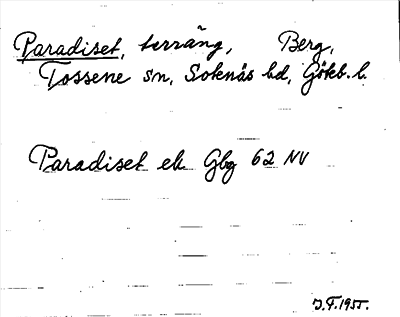 Paradiset, terräng, Berg,
Tossene sn, Sotenäs hd, Göteb. l.
Paradiset ek Gbg 62 NV
J.F. 1955.